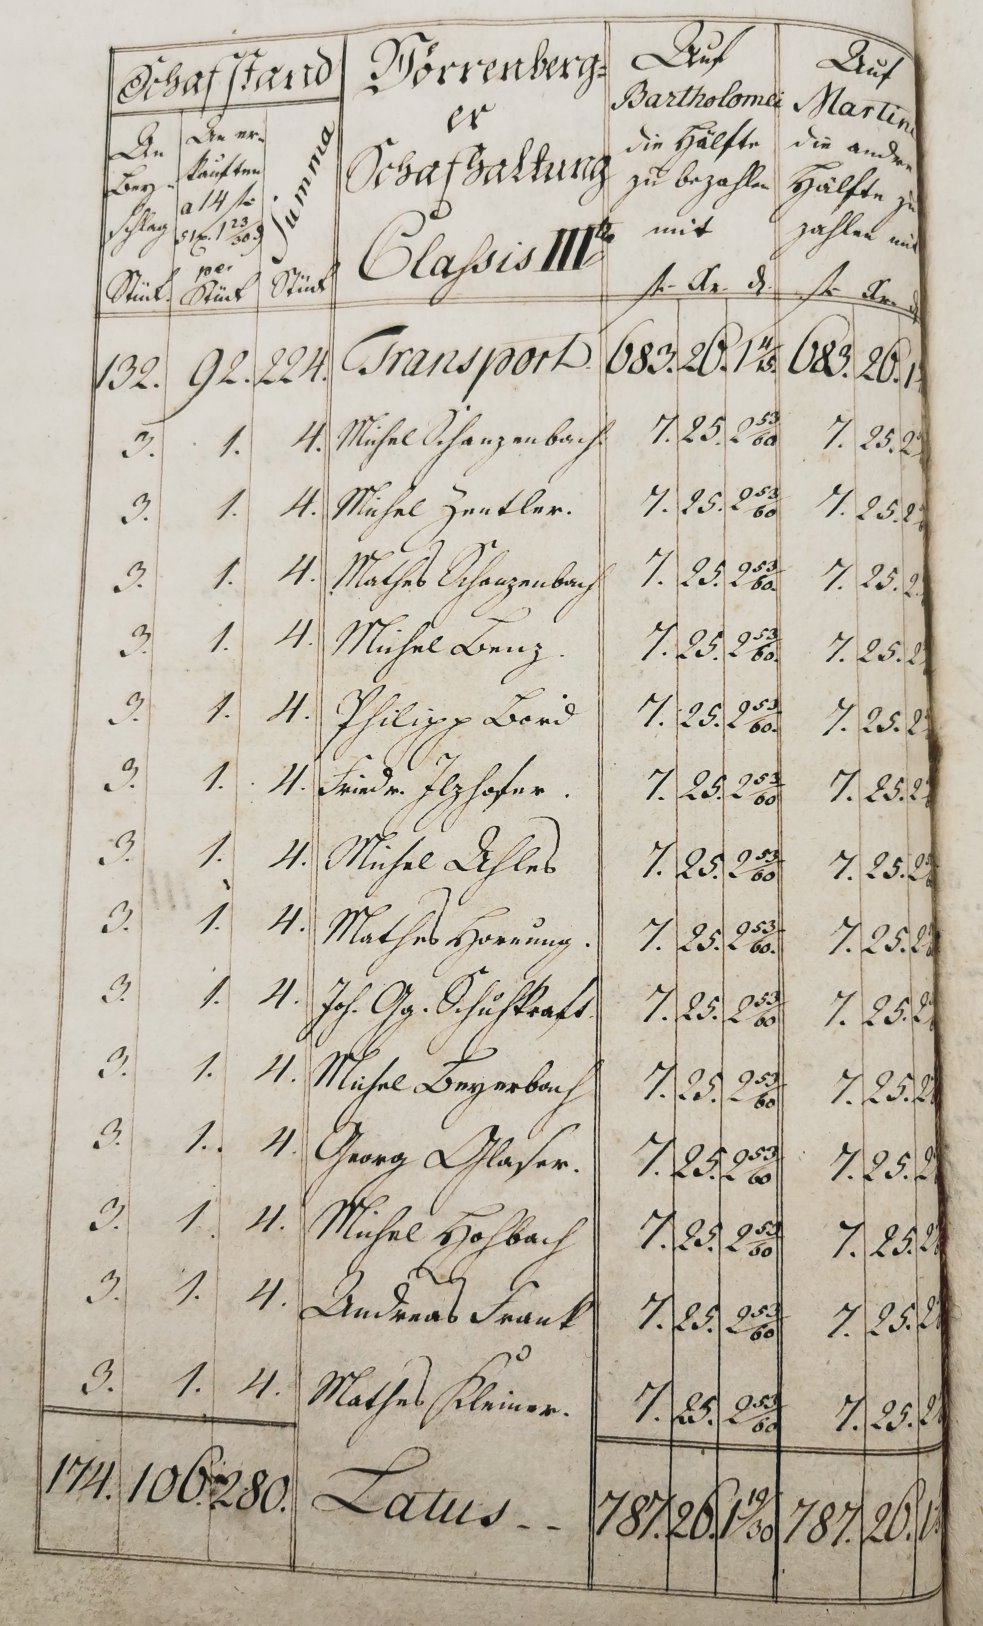 Schafstand
An
Bey-
schlag
Stück.
An er-
kauften
a 14 f
51 Xr. 1 23/30 d
per
Stück
Summa
Stück
Dörrenberg-
er
Schafhaltung
Classis III
Auf
Bartholomei
die Hälfte
zu bezahlen
mit
f. Xr. d.
Auf
Martini
die andre
Hälfte zu
zahlen mit
f. Xr. d
132. 92. 224. Transport 683. 26. 1 11/15. 683. 26. 1
3. 1. 4. Michel Schanzenbach. 7. 25. 2 53/60 7. 25. 2
3. 1. 4. Michel Zentler. 7. 25. 2 53/60 7. 25. 2
3. 1. 4. Mathes Schanzenbach 7. 25. 2 53/60. 7. 25. 2
3. 1. 4. Michel Benz. 7. 25. 2 53/60. 7. 25. 2
3. 1. 4. Philipp Bord 7. 25. 2 53/60. 7. 25. 2
3. 1. 4. Friedr. Ilzhofer. 7. 25. 2 53/60 7. 25. 2
3. 1. 4. Michel Uhles 7. 25. 2 53/60 7. 25. 2
3. 1. 4. Mathes Hornung. 7. 25. 2 53/60. 7. 25. 2
3. 1. 4. Joh. Gg. Schuhkraft. 7. 25. 2 53/60 7. 25. 2
3. 1. 4. Michel Beyerbach 7. 25. 2 53/60 7. 25. 2
3. 1. 4. Georg Glaser. 7. 25. 2 53/60 7. 25. 2
3. 1. 4. Michel Hohbach 7. 25. 2 53/60 7. 25. 2
3. 1. 4. Andreas Frank 7. 25. 2 53/60 7. 25. 2
3. 1. 4. Mathes Kleiner. 7. 25. 2 53/60 7. 25. 2
174. 106. 280. Latus -- 787. 26. 1 19/30 787. 26. 1